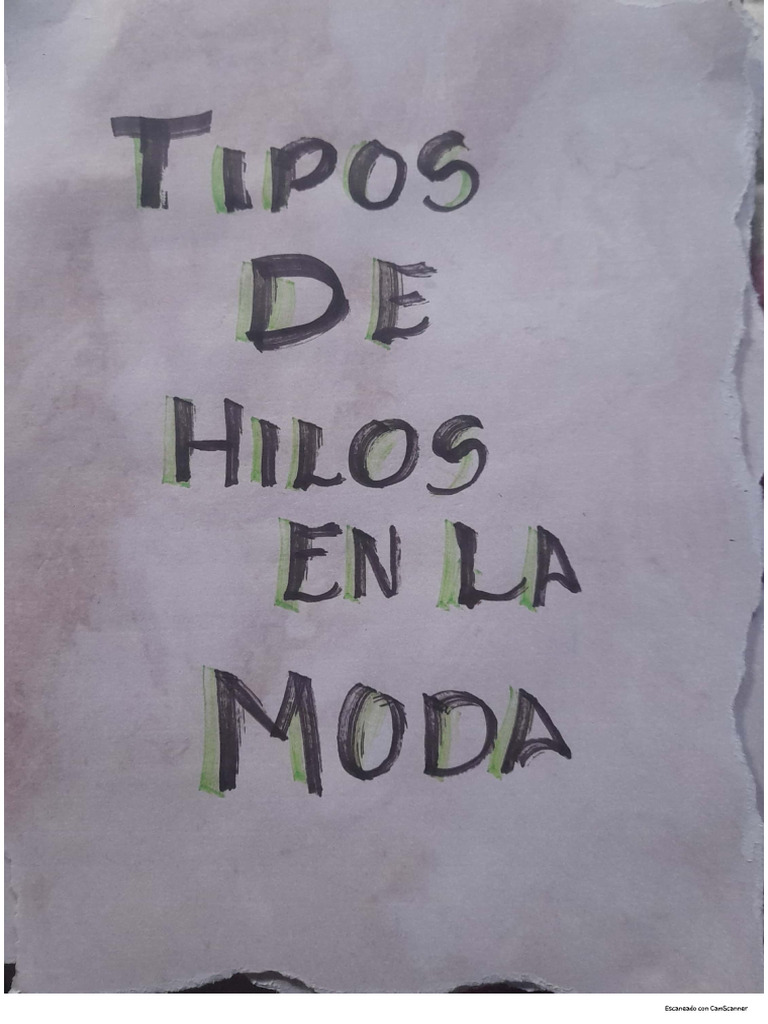 TIPOS
DE
HILOS
EN LA
MODA
Escaneado con CamScanner